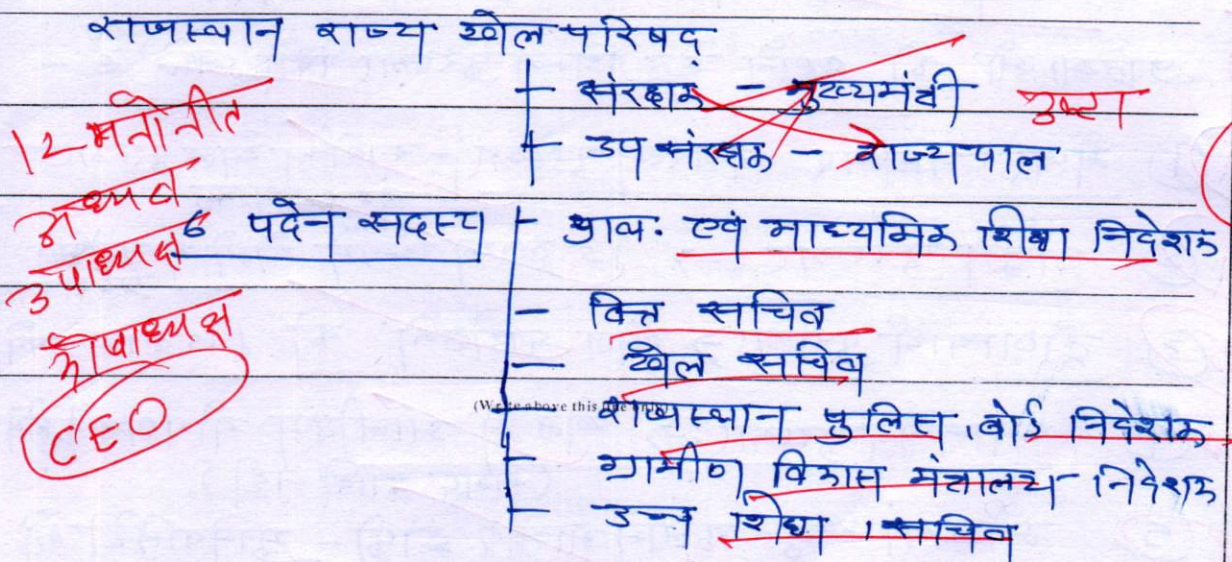 राजस्थान राज्य खेल परिषद्
- संरक्षक - मुख्यमंत्री
- उप संरक्षक - राज्यपाल
12 मनोनीत
अध्यक्ष
उपाध्यक्ष
कोषाध्यक्ष
CEO
6 पदेन सदस्य - प्राथ. एवं माध्यमिक शिक्षा निदेशक
- वित्त सचिव
- खेल सचिव
(Write above this line only)
- राजस्थान पुलिस बोर्ड निदेशक
- ग्रामीण विकास मंत्रालय - निदेशक
- उच्च शिक्षा, सचिव